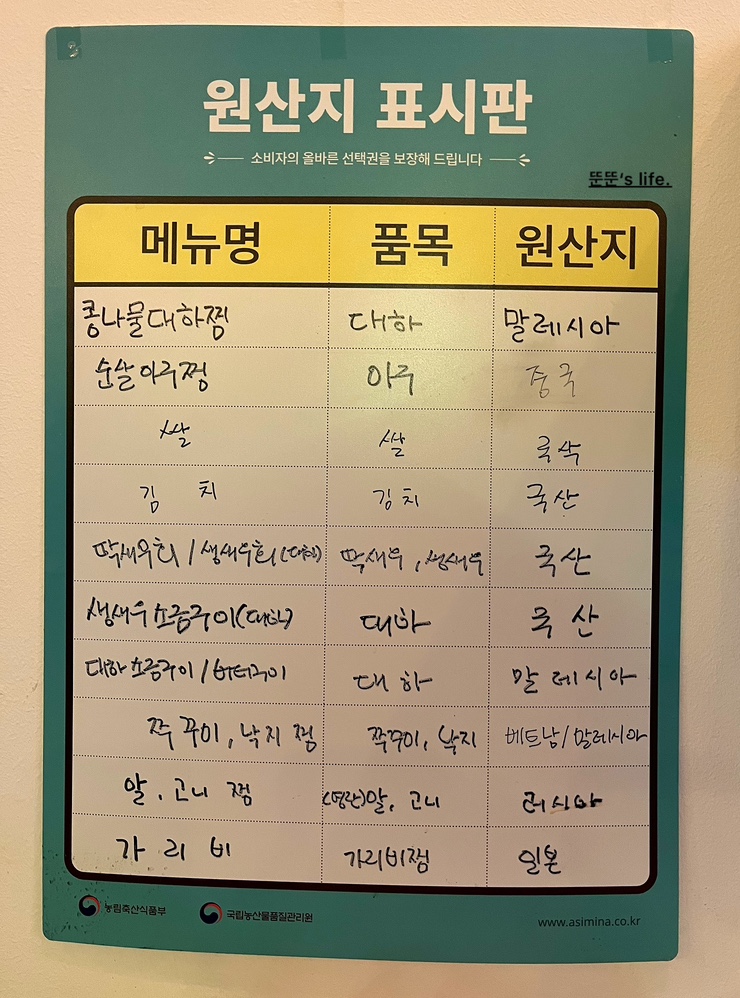 원산지 표시판
소비자의 올바른 선택권을 보장해 드립니다
뚠뚠's life.
메뉴명 품목 원산지
콩나물대하찜 대하 말레시아
순살아구찜 아구 중국
쌀 쌀 국산
김치 김치 국산
딱새우회/생새우회(대하) 딱새우, 생새우 국산
생새우소금구이(대하) 대하 국산
대하소금구이/버터구이 대하 말레시아
쭈꾸미, 낙지 찜 쭈꾸미, 낙지 베트남/말레시아
알, 고니 찜 (명란)알, 고니 러시아
가리비 가리비찜 일본
농림축산식품부 국립농산물품질관리원 www.asimina.co.kr